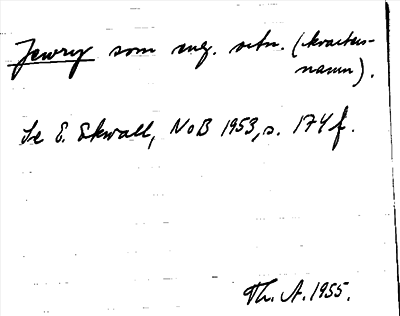 Jewry som eng. ortn. (kvarters-
namn).
Se E. Ekwall, NoB 1953, s. 174 f.
Th. A. 1955.